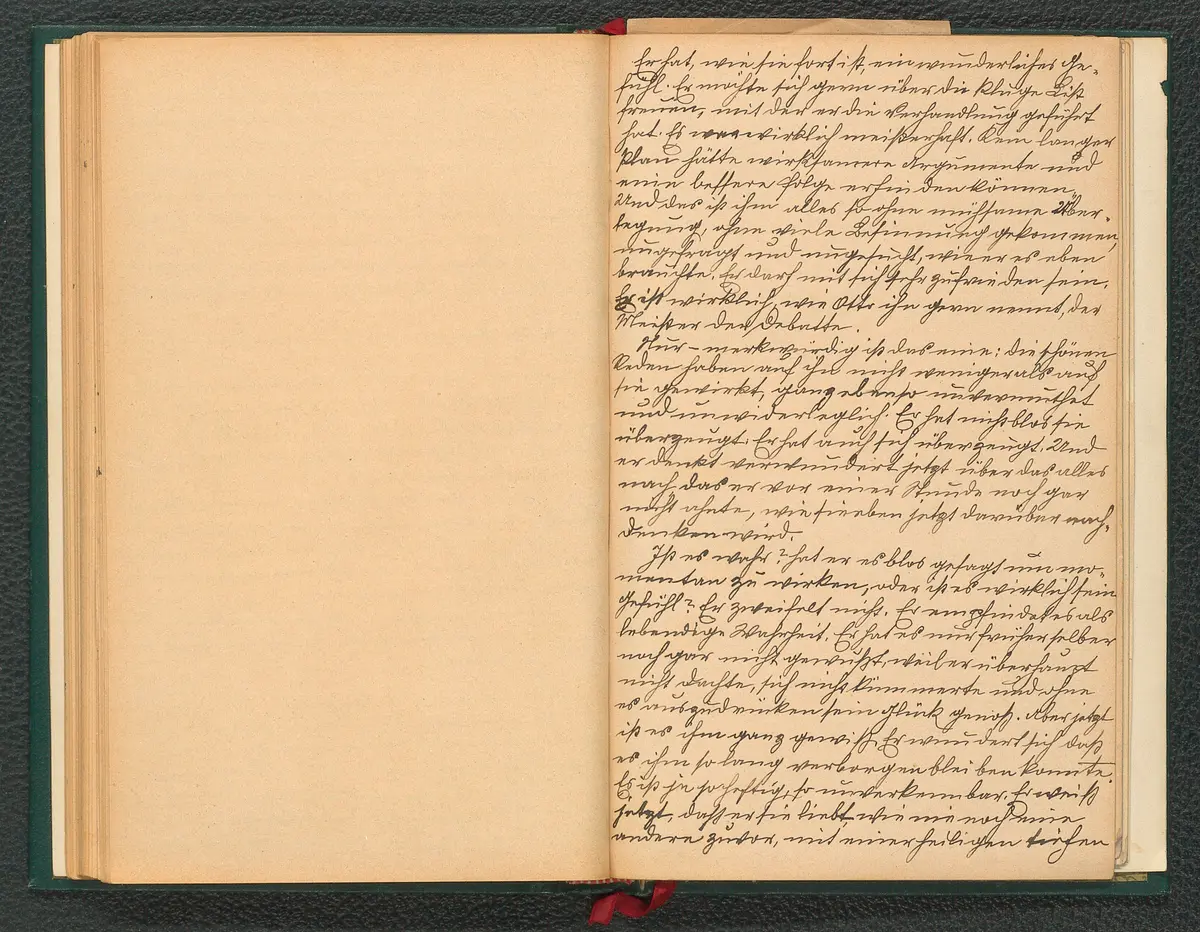 Er hat, wie sie fort ist, ein wunderliches Ge-
fühl. Er möchte sich gern über die kluge List
freuen, mit der er die Verhandlung geführt
hat. Es war wirklich meisterhaft. Kein langer
Plan hätte wirksamere Argumente und
eine bessere Folge erfinden können.
Und das ist ihm alles so ohne mühsame Über-
legung, ohne viele Besinnung gekommen,
ungefragt und ungesucht, wie er es eben
brauchte. Er darf mit sich sehr zufrieden sein.
Er ist wirklich, wie Otto ihn gern nennt, der
Meister der Debatte.
Nur – merkwürdig ist das eine: die schönen
Reden haben auf ihn nicht weniger als auf
sie gewirkt, ganz ebenso unvermuthet
und unwiderleglich. Er hat nicht blos sie
überzeugt. Er hat auch sich überzeugt. Und
er denkt verwundert jetzt über das alles
nach, das er vor einer Stunde noch gar
nicht ahnte, wie sie eben jetzt darüber nach-
denken wird.
Ist es wahr? hat er es blos gesagt um mo-
mentan zu wirken, oder ist es wirklich sein
Gefühl? Er zweifelt nicht. Er empfindet es als
lebendige Wahrheit. Er hat es nur früher selber
noch gar nicht gewußt, weil er überhaupt
nicht dachte, sich nicht kümmerte und ohne
es auszudrücken sein Glück genoß. Aber jetzt
ist es ihm ganz gewiß. Er wundert sich daß
es ihm so lang verborgen bleiben konnte.
Es ist ja so heftig, so unverkennbar. Er weiß
jetzt, daß er sie liebt, wie nie noch eine
andere zuvor, mit einer heiligen tiefen